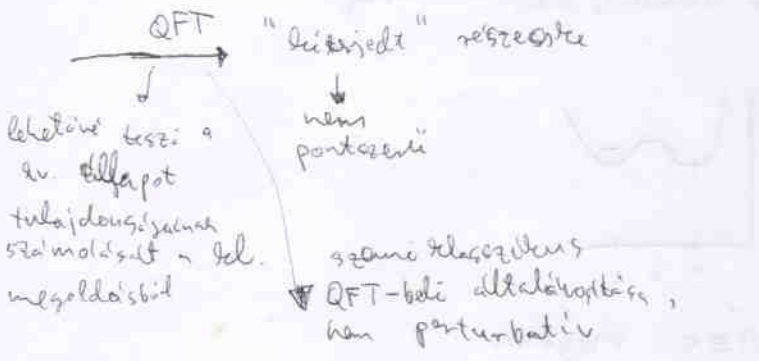 QFT "kiterjedt" részecske
nem
pontszerű
lehetővé teszi a
kv. állapot
tulajdonságainak
számolását a kl.
megoldásból
szemi klasszikus
QFT-beli általánosítása,
nem perturbatív